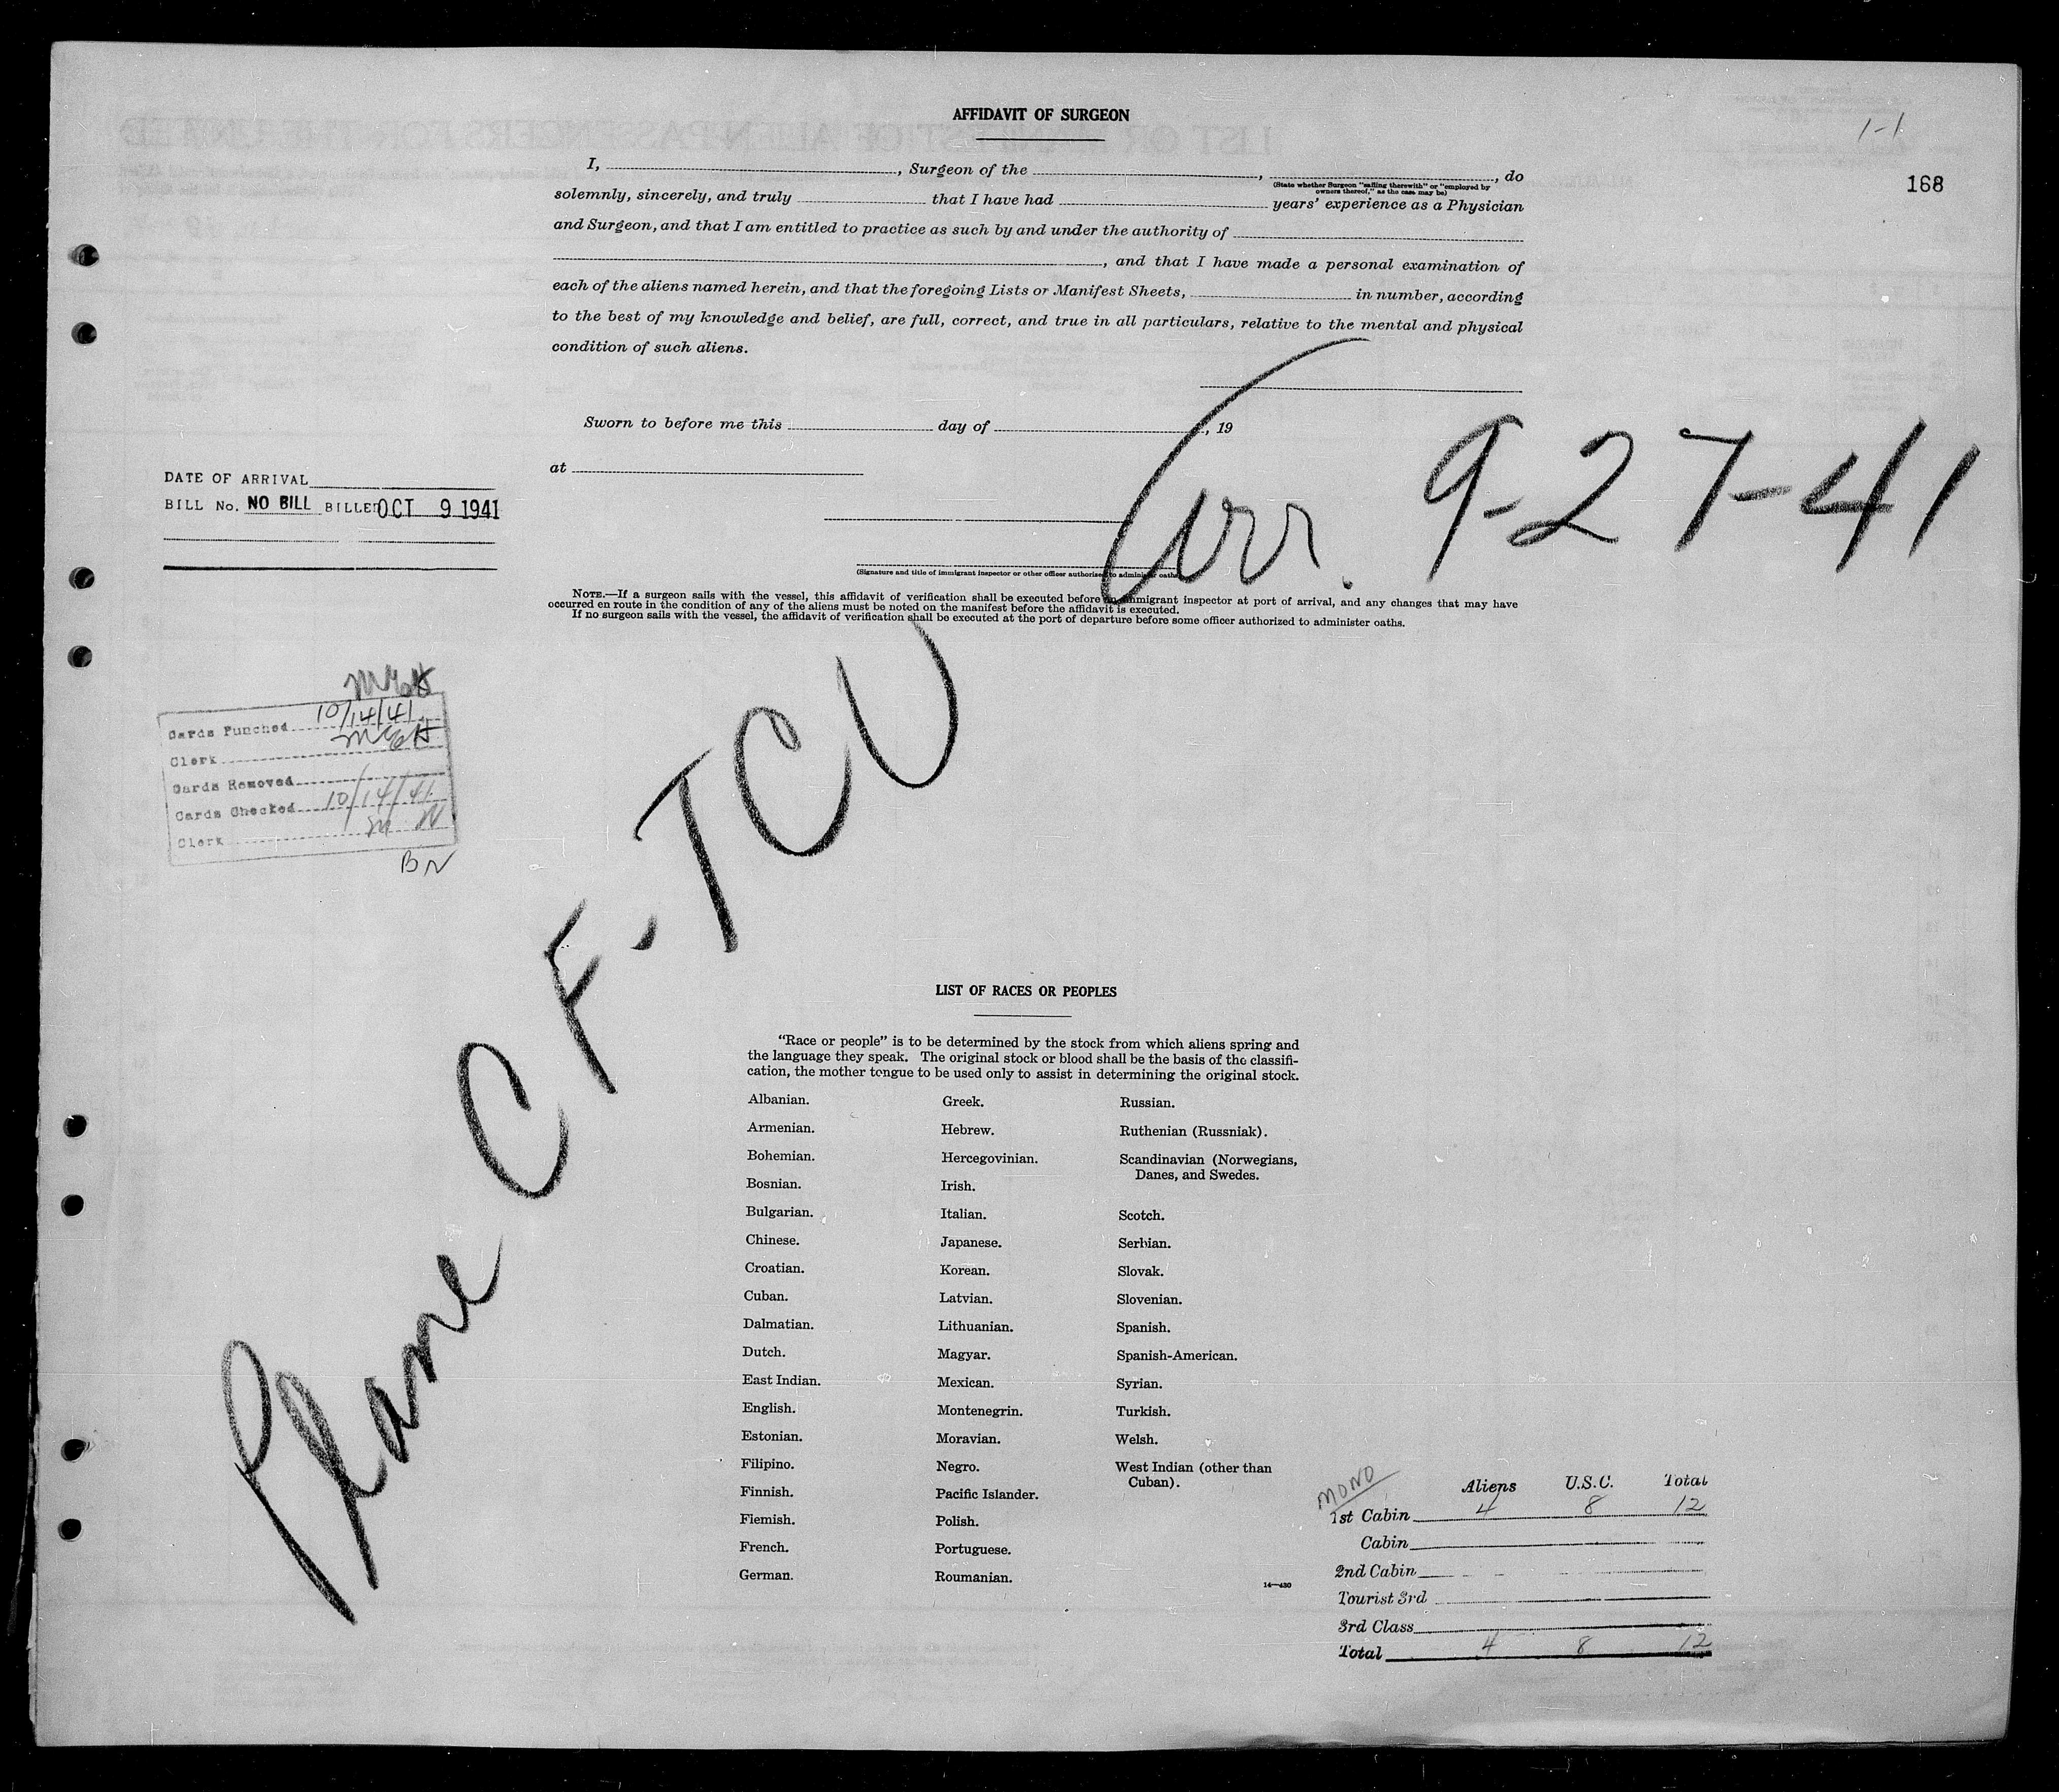 AFFIDAVIT OF SURGEON
1-1
168
I, , Surgeon of the , , do
(State whether Surgeon "sailing therewith" or "employed by
owners thereof," as the case may be)
solemnly, sincerely, and truly that I have had years' experience as a Physician
and Surgeon, and that I am entitled to practice as such by and under the authority of
, and that I have made a personal examination of
each of the aliens named herein, and that the foregoing Lists or Manifest Sheets, in number, according
to the best of my knowledge and belief, are full, correct, and true in all particulars, relative to the mental and physical
condition of such aliens.
Sworn to before me this day of , 19
at
Arr. 9-27-41
DATE OF ARRIVAL
BILL No. NO BILL BILLED OCT 9 1941
(Signature and title of immigrant inspector or other officer authorized to administer oaths)
NOTE.—If a surgeon sails with the vessel, this affidavit of verification shall be executed before an immigrant inspector at port of arrival, and any changes that may have
occurred en route in the condition of any of the aliens must be noted on the manifest before the affidavit is executed.
If no surgeon sails with the vessel, the affidavit of verification shall be executed at the port of departure before some officer authorized to administer oaths.
Cards Punched 10/14/41
Clerk
Cards Removed
Cards Checked 10/14/41
Clerk
BN
Plane CF-TCU
LIST OF RACES OR PEOPLES
"Race or people" is to be determined by the stock from which aliens spring and
the language they speak. The original stock or blood shall be the basis of the classifi-
cation, the mother tongue to be used only to assist in determining the original stock.
Albanian.
Armenian.
Bohemian.
Bosnian.
Bulgarian.
Chinese.
Croatian.
Cuban.
Dalmatian.
Dutch.
East Indian.
English.
Estonian.
Filipino.
Finnish.
Flemish.
French.
German.
Greek.
Hebrew.
Hercegovinian.
Irish.
Italian.
Japanese.
Korean.
Latvian.
Lithuanian.
Magyar.
Mexican.
Montenegrin.
Moravian.
Negro.
Pacific Islander.
Polish.
Portuguese.
Roumanian.
Russian.
Ruthenian (Russniak).
Scandinavian (Norwegians,
Danes, and Swedes.
Scotch.
Serbian.
Slovak.
Slovenian.
Spanish.
Spanish-American.
Syrian.
Turkish.
Welsh.
West Indian (other than
Cuban).
14—430
MONO
Aliens U.S.C. Total
1st Cabin 4 8 12
Cabin
2nd Cabin
Tourist 3rd
3rd Class
Total 4 8 12